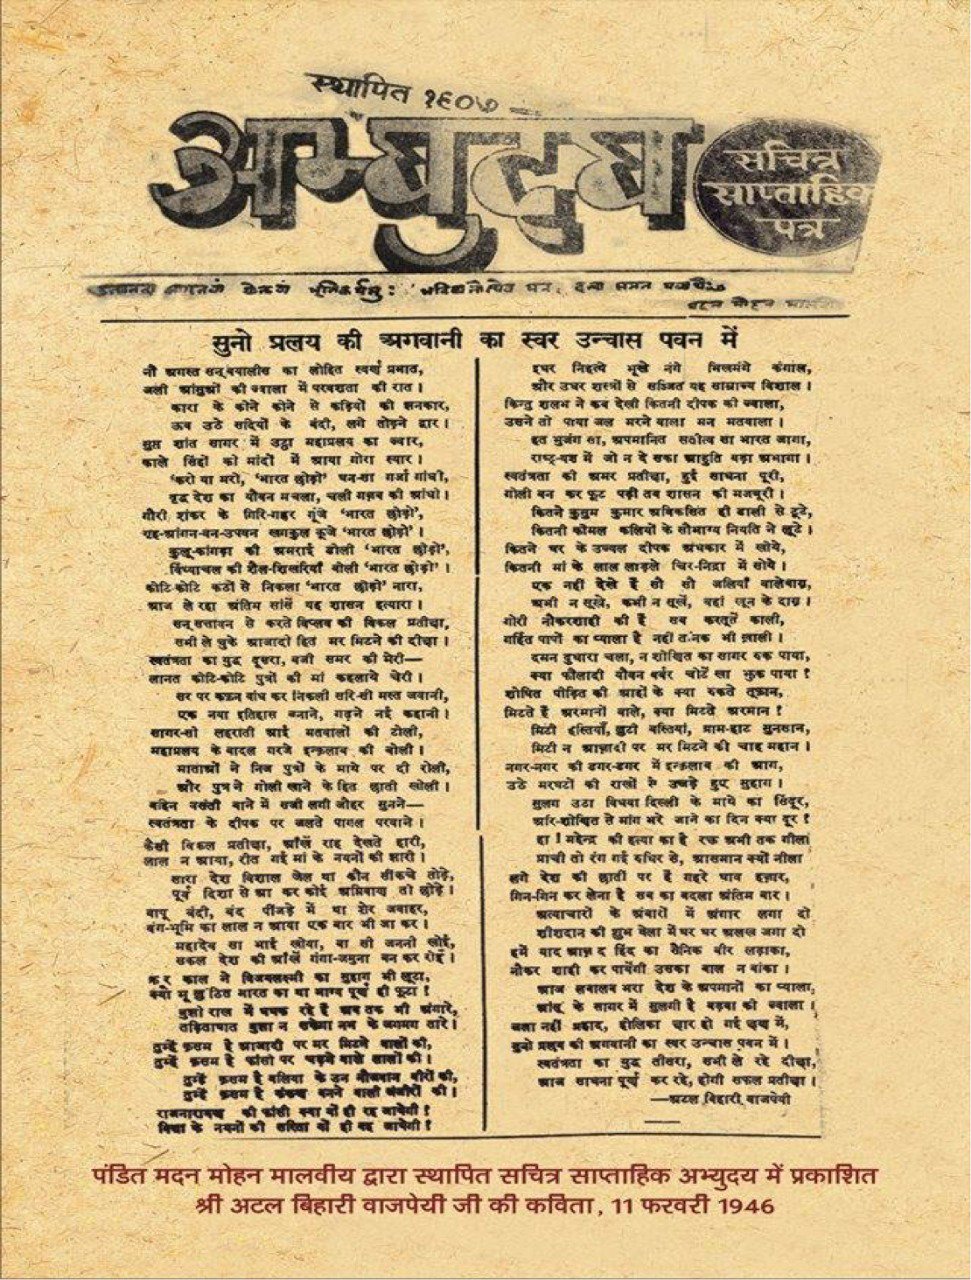 स्थापित १९०७
अभ्युदय
सचित्र
साप्ताहिक
पत्र
सुनो प्रलय की अगवानी का स्वर उन्चास पवन में
नौ अगस्त सन् बयालीस का लोहित स्वर्ण प्रभात,
जली आंसुओं की ज्वाला में परवशता की रात।
कारा के कोने कोने से कड़ियों की झनकार,
ऊब उठे सदियों के बंदी, लगे तोड़ने द्वार।
सुप्त शांत सागर में उठ्ठा महाप्रलय का ज्वार,
काले सिंहों की मांदों में आया गोरा स्यार।
'करो या मरो, 'भारत छोड़ो' घन-सा गर्जा गांधी,
वृद्ध देश का यौवन मचला, चली गज़ब की आंधी।
गौरी शंकर के गिरि-गह्वर गूंजे 'भारत छोड़ो',
गृह-आंगन-बन-उपवन खगकुल कूजे 'भारत छोड़ो'।
कुलू-कांगड़ा की अमराई डोली 'भारत छोड़ो',
विंध्याचल की शैल-शिखरियाँ बोली 'भारत छोड़ो'।
कोटि-कोटि कंठों से निकला 'भारत छोड़ो' नारा,
आज ले रहा अंतिम सांसें यह शासन हत्यारा।
सन् सत्तावन से करते विप्लव की विकल प्रतीक्षा,
सभी ले चुके आजादी हित मर मिटने की दीक्षा।
स्वतंत्रता का युद्ध दूसरा, बजी समर की भेरी—
लानत कोटि-कोटि पुत्रों की मां कहलाये चेरी।
सर पर कफ़न बांध कर निकली सरि-सी मस्त जवानी,
एक नया इतिहास बनाने, गढ़ने नई कहानी।
सागर-सी लहराती आई मतवालों की टोली,
महाप्रलय के बादल गरजे इन्क़लाब की बोली।
माताओं ने निज पुत्रों के माथे पर दी रोली,
और पुत्र ने गोली खाने के हित छाती खोली।
बहिन बसंती बाने में सजी लगी जौहर सुनने—
स्वतंत्रता के दीपक पर जलते पागल परवाने।
कैसी विकल प्रतीक्षा, आँखें राह देखते हारी,
लाल न आया, रीत गई मां के नयनों की झारी।
सारा देश विशाल जेल था कौन सींकचे तोड़े,
पूर्व दिशा से आ कर कोई अग्निबाण तो छोड़े।
बापू बंदी, बंद पींजड़े में था शेर जवाहर,
बंग-भूमि का लाल न आया एक बार भी जा कर।
महादेव सा भाई खोया, बा सी जननी खोई,
सकल देश की आँखें गंगा-जमुना बन कर रोईं।
क्रूर काल ने विजयलक्ष्मी का सुहाग भी लूटा,
क्यों भू लुंठित भारत का था भाग्य पूर्ण ही फूटा?
बुझी राख में धधक रहे हैं अब तक भी अंगारे,
तुम्हें क़सम है आजादी पर मर मिटने वालों की,
तुम्हें क़सम है फांसी पर चढ़ने वाले लालों की।
तुम्हें क़सम है बलिया के उन नौजवान वीरों की,
राजनारायण की फांसी क्या यों ही रह जायेगी?
विद्या के नयनों की सरिता यों ही बह जायेगी?
इधर निहत्थे भूखे नंगे भिखमंगे कंगाल,
और उधर शस्त्रों से सज्जित यह साम्राज्य विशाल।
किन्तु शलभ ने कब देखी कितनी दीपक की ज्वाला,
उसने तो पाया जल मरने वाला मन मतवाला।
हत भुजंग सा, अपमानित सतीत्व सा भारत जागा,
राष्ट्र-यज्ञ में जो न दे सका आहुति बड़ा अभागा।
स्वतंत्रता की अमर प्रतीक्षा, हुई साधना पूरी,
गोली बन कर फूट पड़ी तब शासन की मजबूरी।
कितने कुसुम कुमार अविकसित ही डाली से टूटे,
कितनी कोमल कलियों के सौभाग्य नियति ने लूटे।
कितने घर के उज्वल दीपक अंधकार में खोये,
कितनी मां के लाल लाड़ले चिर-निद्रा में सोये।
एक नहीं देखे हैं सौ सौ जलियाँ वालेबाग़,
अभी न सूखे, कभी न सूखें, यहां खून के दाग़।
गोरी नौकरशाही की हैं सब करतूतें काली,
गर्हित पापों का प्याला है नहीं तनिक भी ख़ाली।
दमन दुधारा चला, न शोणित का सागर रुक पाया,
क्या फौलादी यौवन बर्बर चोटें खा झुक पाया?
शोषित पीड़ित की आहों के क्या रुकते तूफ़ान,
मिटते हैं अरमानों वाले, क्या मिटते अरमान?
मिटी हस्तियाँ, लुटी बस्तियां, ग्राम-हाट सुनसान,
मिटी न आज़ादी पर मर मिटने की चाह महान।
नगर-नगर की डगर-डगर में इन्क़लाब की आग,
उठे मरघटों की राखों से उजड़े हुए सुहाग।
सुलग उठा विधवा दिल्ली के माथे का सिंदूर,
अरि-शोणित से मांग भरे जाने का दिन क्या दूर?
हा! महेन्द्र की हत्या का है रक्त अभी तक गीला
प्राची तो रंग गई रुधिर से, आसमान क्यों नीला
लगे देश की छाती पर हैं गहरे घाव हज़ार,
गिन-गिन कर लेना है सब का बदला अंतिम बार।
अत्याचारों के अंबारों में अंगार लगा दो
शीशदान की शुभ बेला में घर घर अलख जगा दो
हमें याद आज़ाद हिंद का सैनिक वीर लड़ाका,
नौकर शाही कर पायेगी उसका बाल न बांका।
आज लबालब भरा देश के अपमानों का प्याला,
आंसू के सागर में सुलगी है बड़वा की ज्वाला।
जला नहीं प्रह्लाद, होलिका क्षार हो गई क्षण में,
सुनो प्रलय की अगवानी का स्वर उन्चास पवन में।
स्वतंत्रता का युद्ध तीसरा, सभी ले रहे दीक्षा,
आज साधना पूर्ण कर रहे, होगी सफल प्रतीक्षा।
—अटल बिहारी वाजपेयी
पंडित मदन मोहन मालवीय द्वारा स्थापित सचित्र साप्ताहिक अभ्युदय में प्रकाशित
श्री अटल बिहारी वाजपेयी जी की कविता, 11 फरवरी 1946